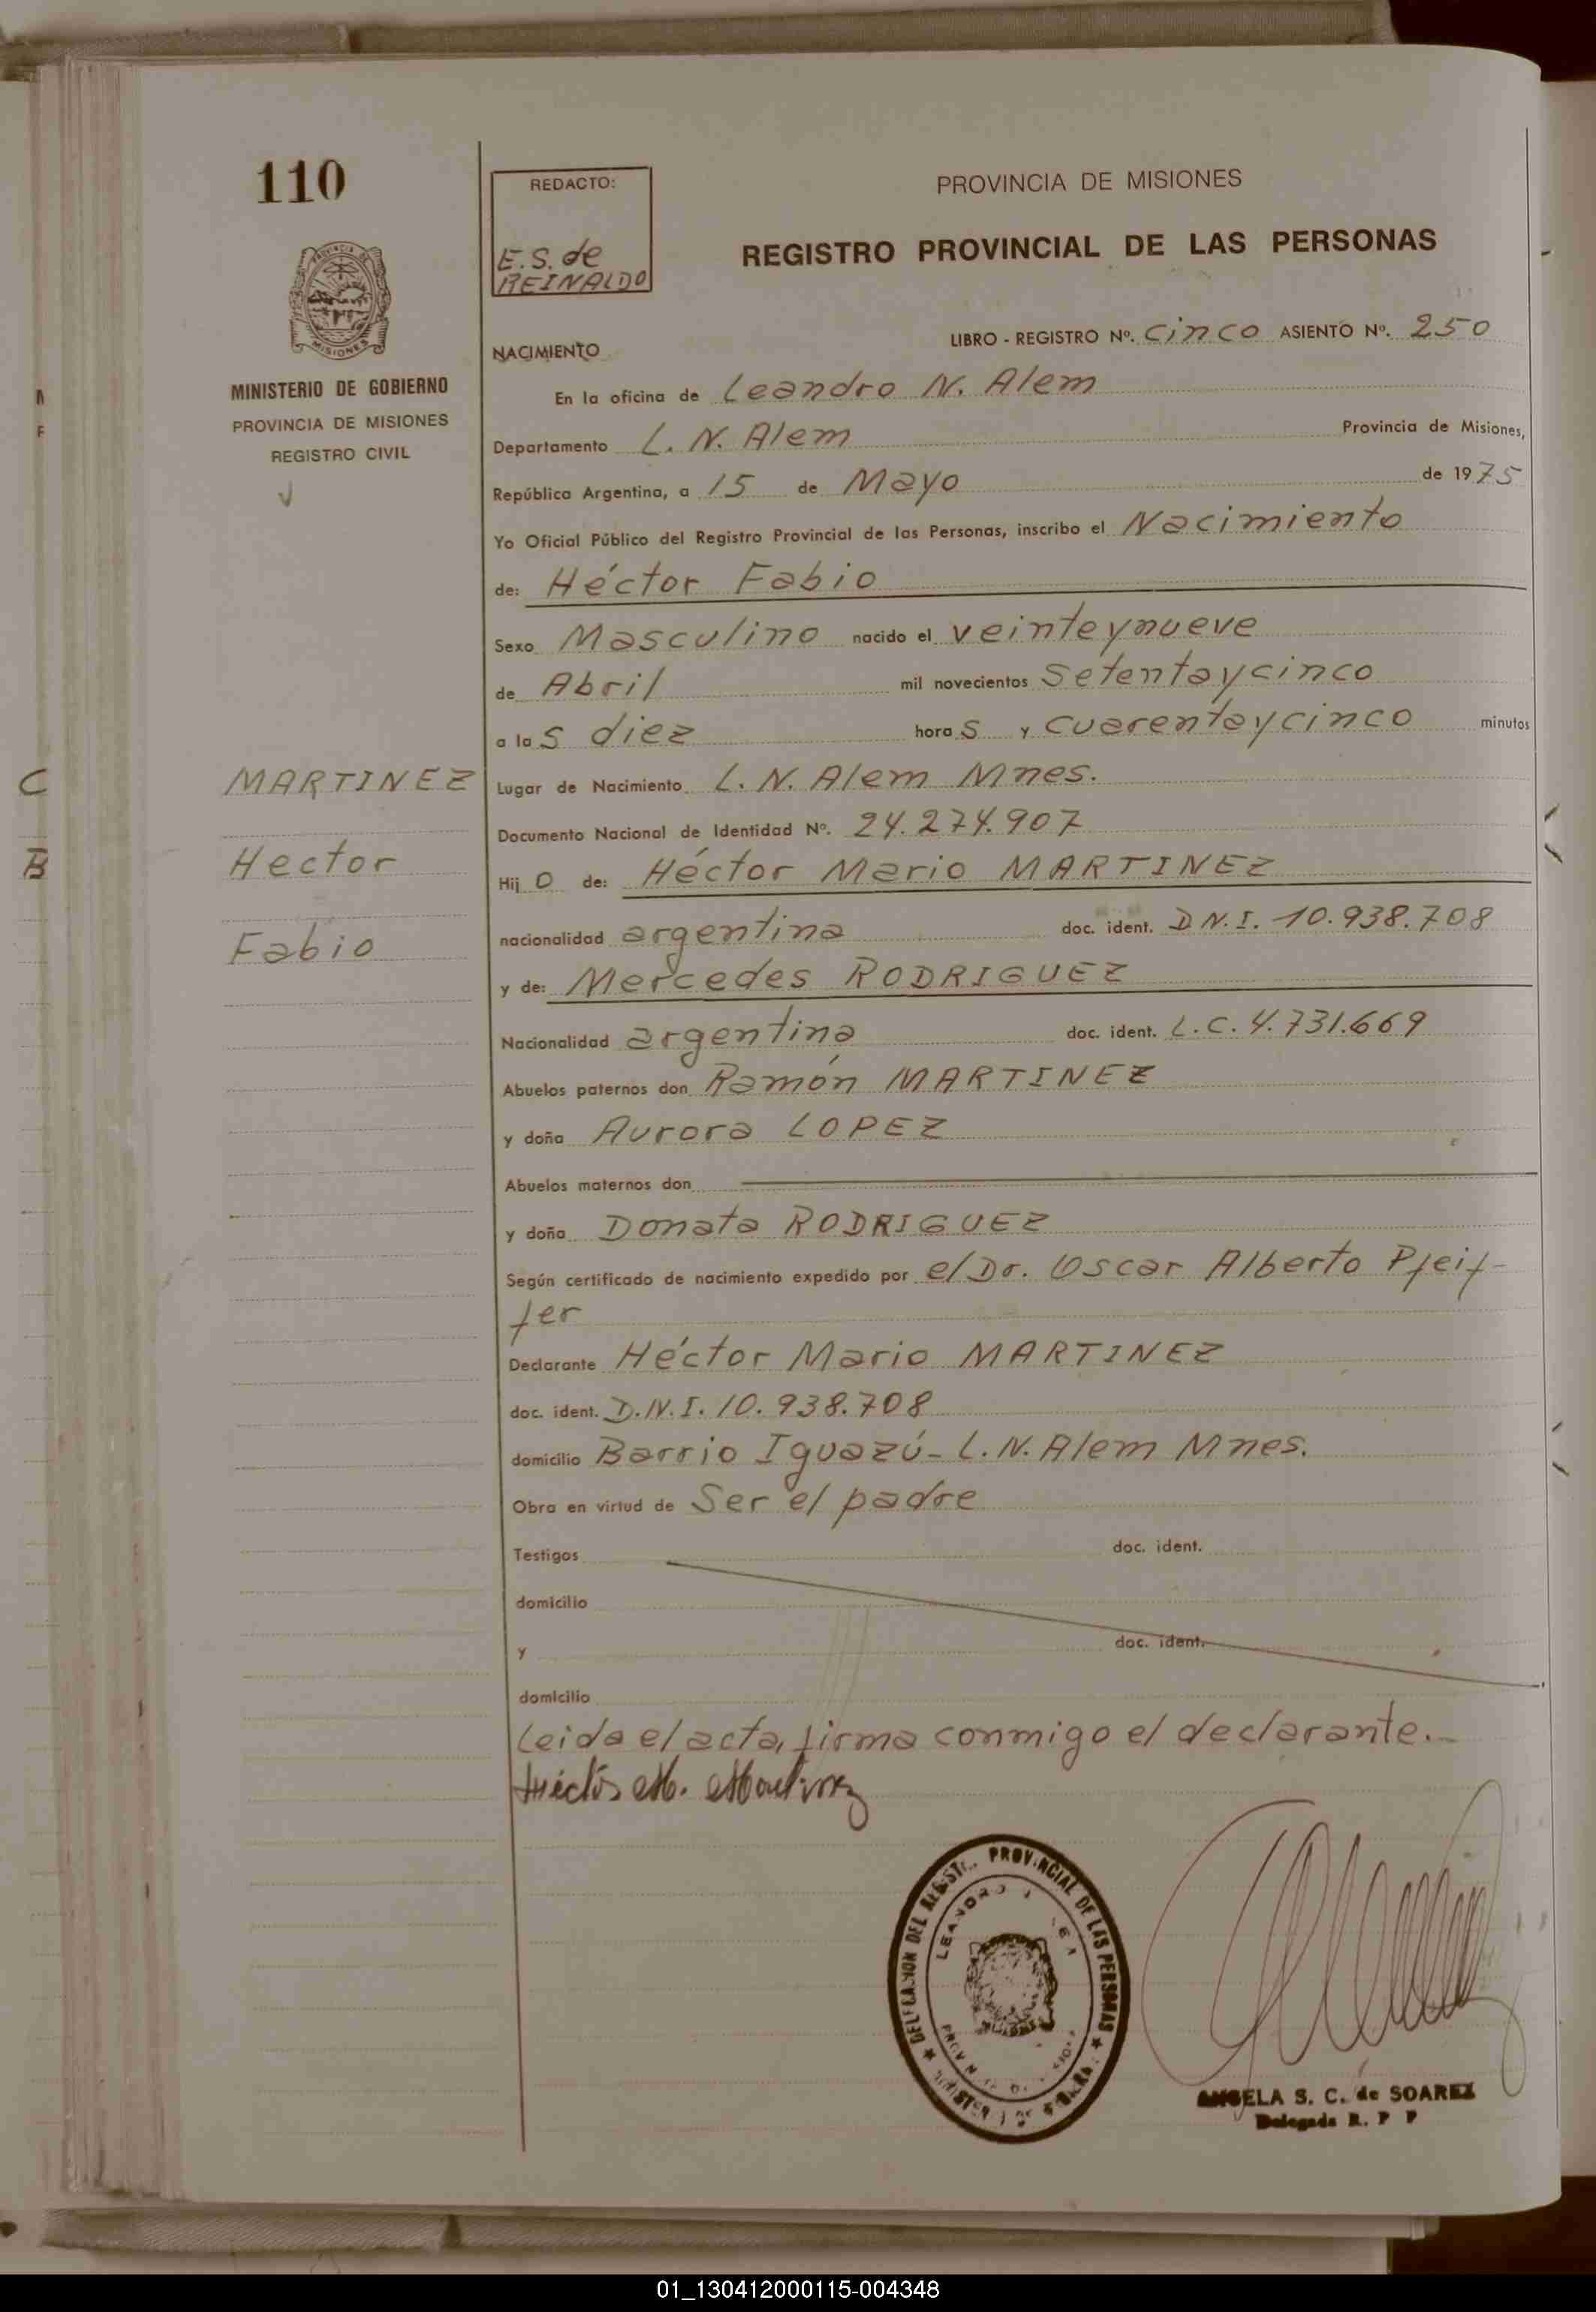 110
REDACTO:
E.S. de
REINALDO
PROVINCIA DE MISIONES
REGISTRO PROVINCIAL DE LAS PERSONAS
MISIONES
MINISTERIO DE GOBIERNO
PROVINCIA DE MISIONES
REGISTRO CIVIL
NACIMIENTO
LIBRO - REGISTRO Nº. Cinco ASIENTO Nº. 250
En la oficina de Leandro N. Alem
Departamento L. N. Alem Provincia de Misiones,
República Argentina, a 15 de Mayo de 1975
Yo Oficial Público del Registro Provincial de las Personas, inscribo el Nacimiento
de: Héctor Fabio
Sexo Masculino nacido el veinteynueve
de Abril mil novecientos Setentaycinco
a las diez horas y cuarentaycinco minutos
MARTINEZ
Hector
Fabio
Lugar de Nacimiento L. N. Alem Mnes.
Documento Nacional de Identidad Nº. 24.274.907
Hijo de: Héctor Mario MARTINEZ
nacionalidad argentina doc. ident. D.N.I. 10.938.708
y de: Mercedes RODRIGUEZ
Nacionalidad argentina doc. ident. L.C. 4.731.669
Abuelos paternos don Ramón MARTINEZ
y doña Aurora LOPEZ
Abuelos maternos don
y doña Donata RODRIGUEZ
Según certificado de nacimiento expedido por el Dr. Oscar Alberto Pfeif-
fer
Declarante Héctor Mario MARTINEZ
doc. ident. D.N.I. 10.938.708
domicilio Barrio Iguazú - L.N. Alem Mnes.
Obra en virtud de Ser el padre
Testigos doc. ident.
domicilio
y doc. ident.
domicilio
Leida el acta, firma conmigo el declarante.-
Héctor M. Martinez
DELEGACION DEL REGISTRO PROVINCIAL DE LAS PERSONAS
LEANDRO
ANGELA S. C. de SOAREZ
Delegada R. P P
01_130412000115-004348